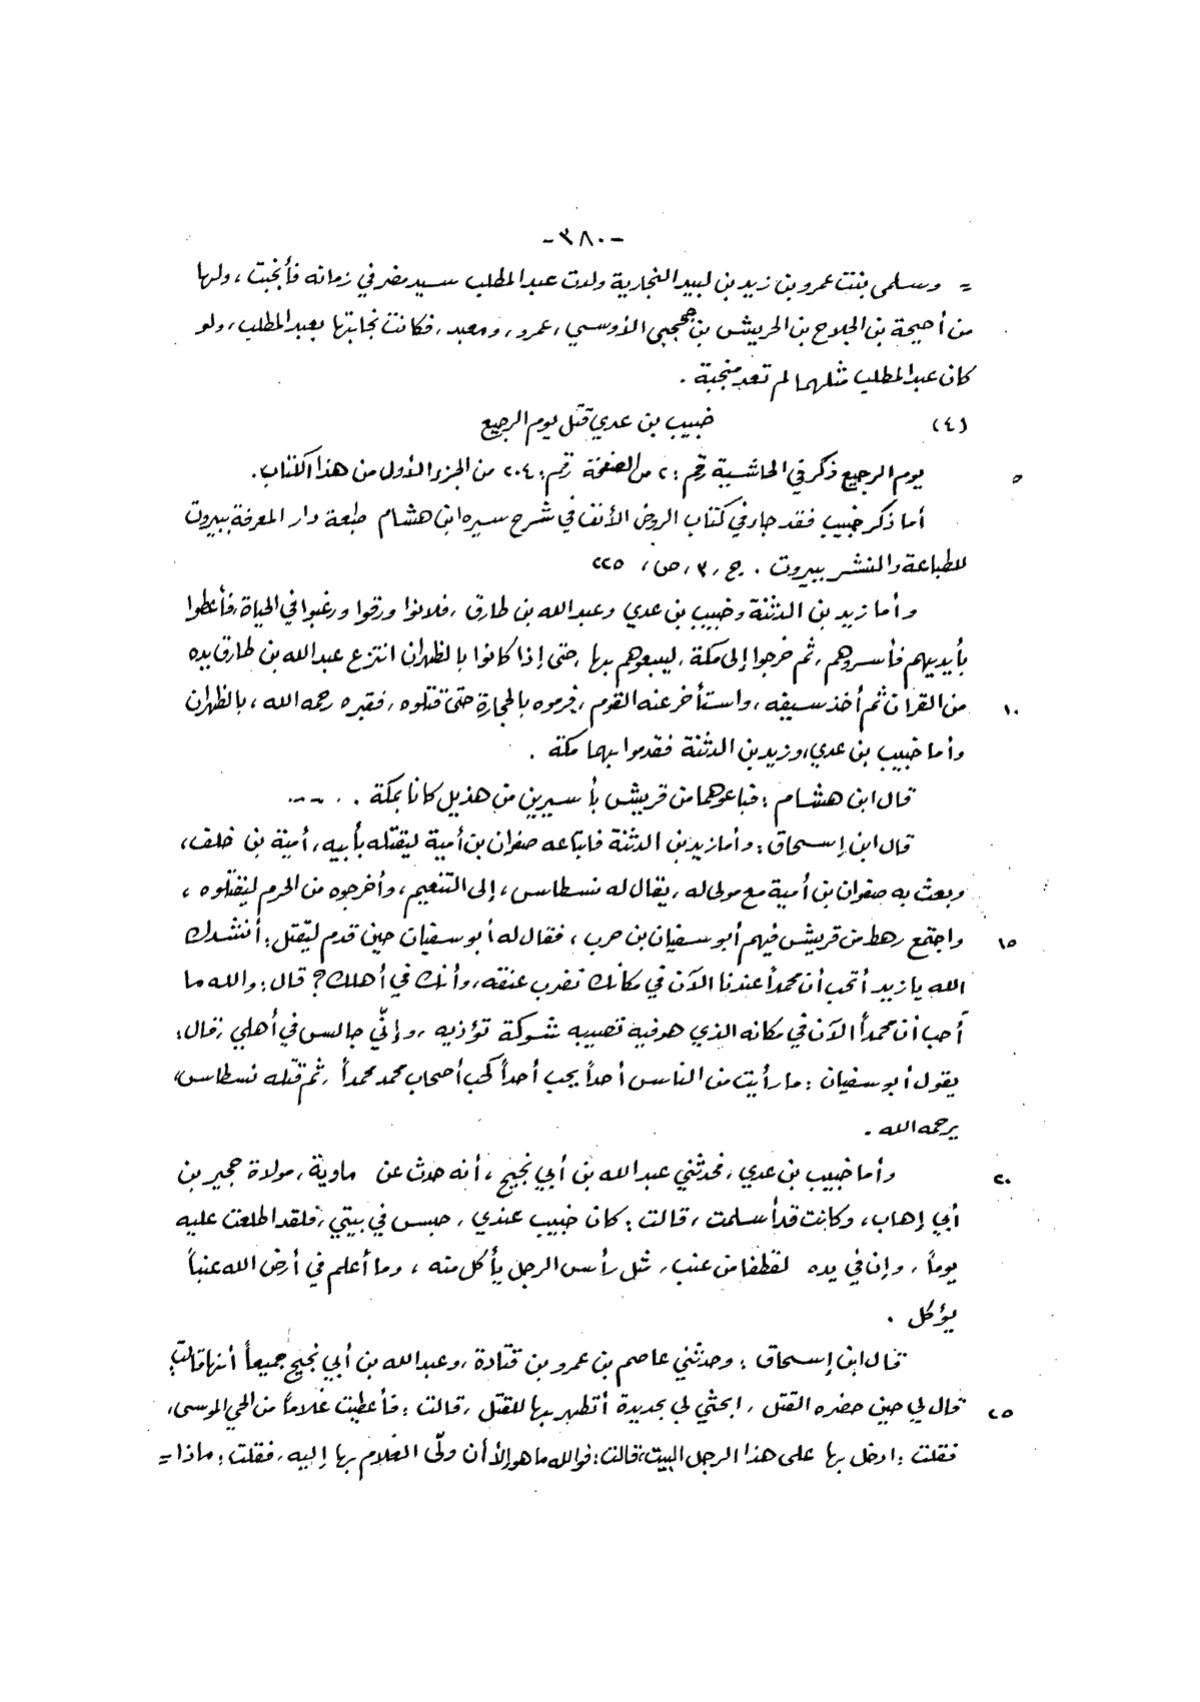 -٣٨٠-
= وسلمى بنت عمرو بن زيد بن لبيد النجارية ولدت عبد المطلب سيد مضر في زمانه فأنجبت ، ولها
من أحيحة بن الجلاح بن الحريش بن جحجبى الأوسي ، عمرو ، ومعبد ، فكانت نجابتها بعبد المطلب ، ولو
كان عبد المطلب مثلهما لم تعد منجبة .
(٤) خبيب بن عدي قتل يوم الرجيع
٥ يوم الرجيع ذكر في الحاشية رقم : ٢ من الصفحة رقم : ٢٠٤ من الجزء الأول من هذا الكتاب .
أما ذكر خبيب فقد جاء في كتاب الروض الأنف في شرح سيرة ابن هشام طبعة دار المعرفة ببيروت
للطباعة والنشر ببيروت . ج ، ٣ ، ص ، ٢٢٥
وأما زيد بن الدثنة وخبيب بن عدي وعبد الله بن طارق ، فلانوا ورقوا ورغبوا في الحياة ، فأعطوا
بأيديهم فأسروهم ، ثم خرجوا إلى مكة ، ليبيعوهم بها ، حتى إذا كانوا بالظهران انتزع عبد الله بن طارق يده
١٠ من القران ثم أخذ سيفه ، واستأخر عنه القوم ، فرموه بالحجارة حتى قتلوه ، فقبره رحمه الله ، بالظهران
وأما خبيب بن عدي ، وزيد بن الدثنة فقدموا بهما مكة .
قال ابن هشام : فباعوهما من قريش بأسيرين من هذيل كانا بمكة . ....
قال ابن إسحاق : وأما زيد بن الدثنة فابتاعه صفوان بن أمية ليقتله بأبيه ، أمية بن خلف ،
وبعث به صفوان بن أمية مع مولى له ، يقال له نسطاس ، إلى التنعيم ، وأخرجوه من الحرم ليقتلوه ،
١٥ واجتمع رهط من قريش فيهم أبو سفيان بن حرب ، فقال له أبو سفيان حين قدم ليقتل : أنشدك
الله يا زيد أتحب أن محمداً عندنا الآن في مكانك نضرب عنقه ، وأنك في أهلك ؟ قال : والله ما
أحب أن محمداً الآن في مكانه الذي هو فيه تصيبه شوكة تؤذيه ، وإنّي جالس في أهلي ، قال :
يقول أبو سفيان : ما رأيت من الناس أحداً يحب أحداً كحب أصحاب محمد محمداً ، ثم قتله نسطاس ،
يرحمه الله .
٢٠ وأما خبيب بن عدي ، فحدثني عبد الله بن أبي نجيح ، أنه حدث عن ماوية ، مولاة حجير بن
أبي إهاب ، وكانت قد أسلمت ، قالت : كان خبيب عندي ، حبس في بيتي ، فلقد اطلعت عليه
يوماً ، وإن في يده لقطفا من عنب ، مثل رأس الرجل يأكل منه ، وما أعلم في أرض الله عنباً
يؤكل .
قال ابن إسحاق : وحدثني عاصم بن عمرو بن قتادة ، وعبد الله بن أبي نجيح جميعاً أنها قالت :
٢٥ قال لي حين حضره القتل ، ابعثي لي بحديدة أتطهر بها للقتل ، قالت : فأعطيت غلاماً من الحي الموسى ،
فقلت : ادخل بها على هذا الرجل البيت ، قالت : فوالله ما هو إلا أن ولّى الغلام بها إليه ، فقلت : ماذا =